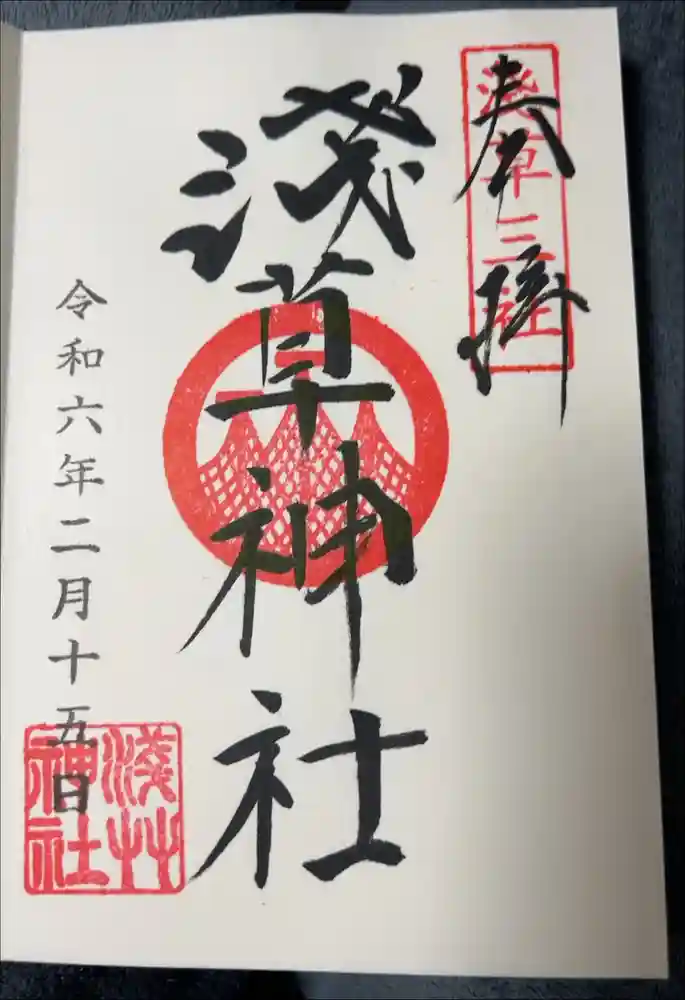 奉拝
淺草三社
淺草神社
令和六年二月十五日
淺艸
神社